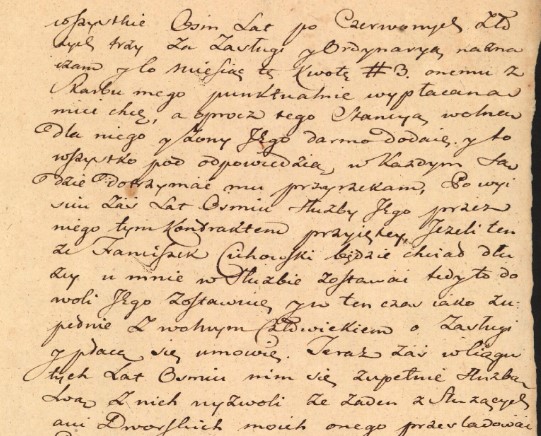 wszystkie Osm Lat po Czerwonych Zło
tych trzy za Zasługi y Ordynaryą nazna
czam y co miesiąc tę kwotę # 3. onemu z
Skarbu mego punktualnie wypłacana
mieć chcę, a oprocz tego Stancyą wolną
dla niego y Żony Jego darmo dodaię. y to
wszystko pod odpowiedzią w Każdym Są
dzie dotrzymać mu przyrzekam. Po wyi
ściu zaś Lat Osmiu służby Jego przez
niego tym Kontraktem przyiętey, Jeżeli ten
że Franciszek będzie chciał dłu
ży u mnie w służbie zostawać tedy to do
woli Jego zostawuię y w ten czas iako zu
pełnie z wolnym Człowiekiem o Zasługi
y płacą się umowię. Teraz zaś w ciągu
tych Lat Osmiu nim się zupełnie służbą
swą z nich wyzwoli że żaden z Służących
ani Dworskich moich onego prześladować